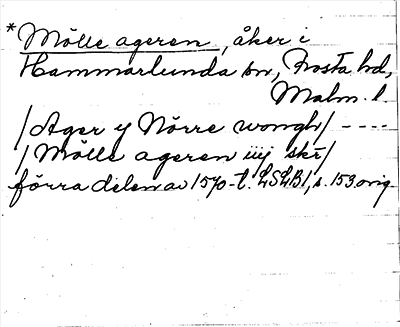 *Mölle ageren, åker i
Hammarlunda sn, Frosta hd,
Malm. l.
/Ager y Nörre wongh/ ----
/Mölle ageren iiij skr/
förra delen av 1570-t. LSLB1, s. 153 orig.